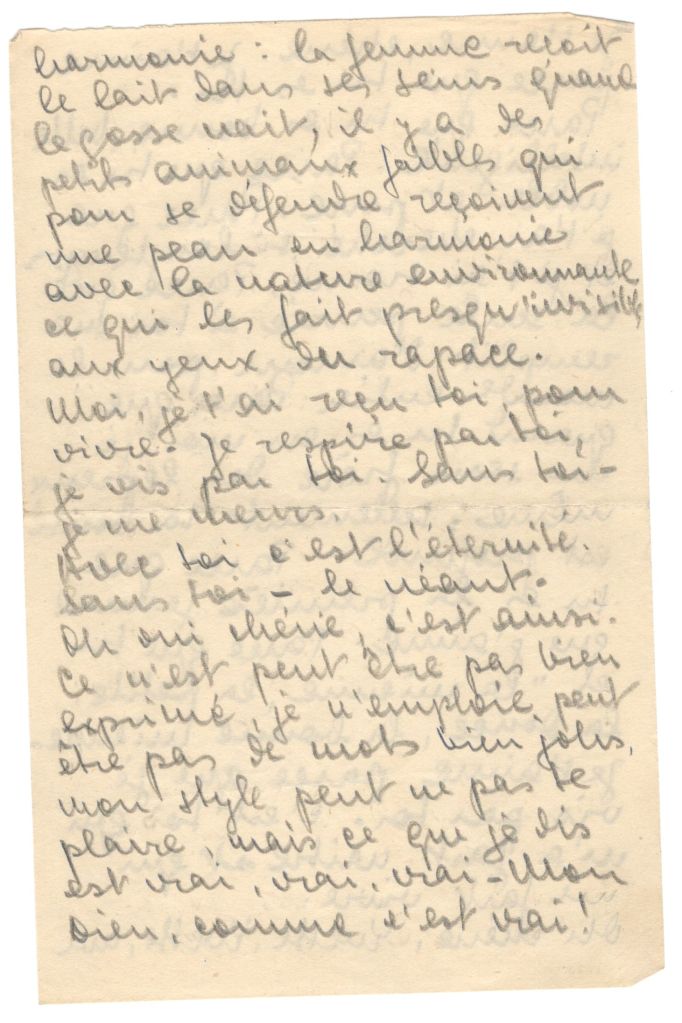 harmonie : la femme reçoit
le lait dans ses seins quand
le gosse nait, il y a des
petits animaux faibles qui
pour se défendre reçoivent
une peau en harmonie
avec la nature environnante
ce qui les fait presqu'invisibles
aux yeux du rapace.
Moi, je t'ai reçu toi pour
vivre. Je respire par toi,
je vis par toi. Sans toi -
je me meurs.
Avec toi c'est l'éternité.
Sans toi - le néant.
Oh oui chérie, c'est ainsi.
Ce n'est peut être pas bien
exprimé, je n'emploie peut
être pas de mots bien jolis,
mon style peut ne pas te
plaire, mais ce que je dis
est vrai, vrai, vrai - Mon
Dieu, comme c'est vrai !